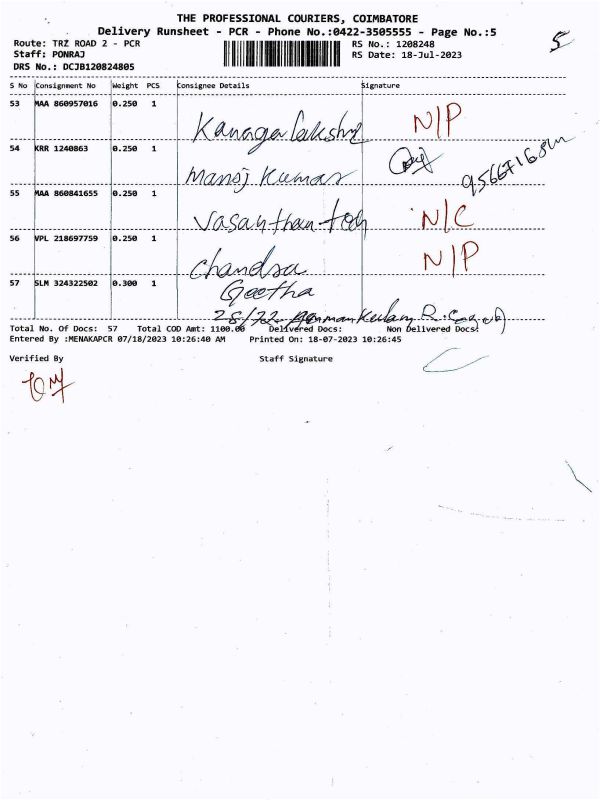 THE PROFESSIONAL COURIERS, COIMBATORE
Delivery Runsheet - PCR - Phone No.:0422-3505555 - Page No.:5
5
Route: TRZ ROAD 2 - PCR
RS No.: 1208248
Staff: PONRAJ
RS Date: 18-Jul-2023
DRS No.: DCJB120824805
S No Consignment No Weight PCS Consignee Details Signature
53 MAA 860957016 0.250 1
Kanagalakshmi N/P
54 KRR 1240863 0.250 1
Manoj Kumar
55 MAA 860841655 0.250 1
N/C
56 VPL 218697759 0.250 1
Chandra N/P
57 SLM 324322502 0.300 1
Geetha
28/72
Total No. Of Docs: 57 Total COD Amt: 1100.00 Delivered Docs: Non Delivered Docs:
Entered By :MENAKAPCR 07/18/2023 10:26:40 AM Printed On: 18-07-2023 10:26:45
Verified By Staff Signature